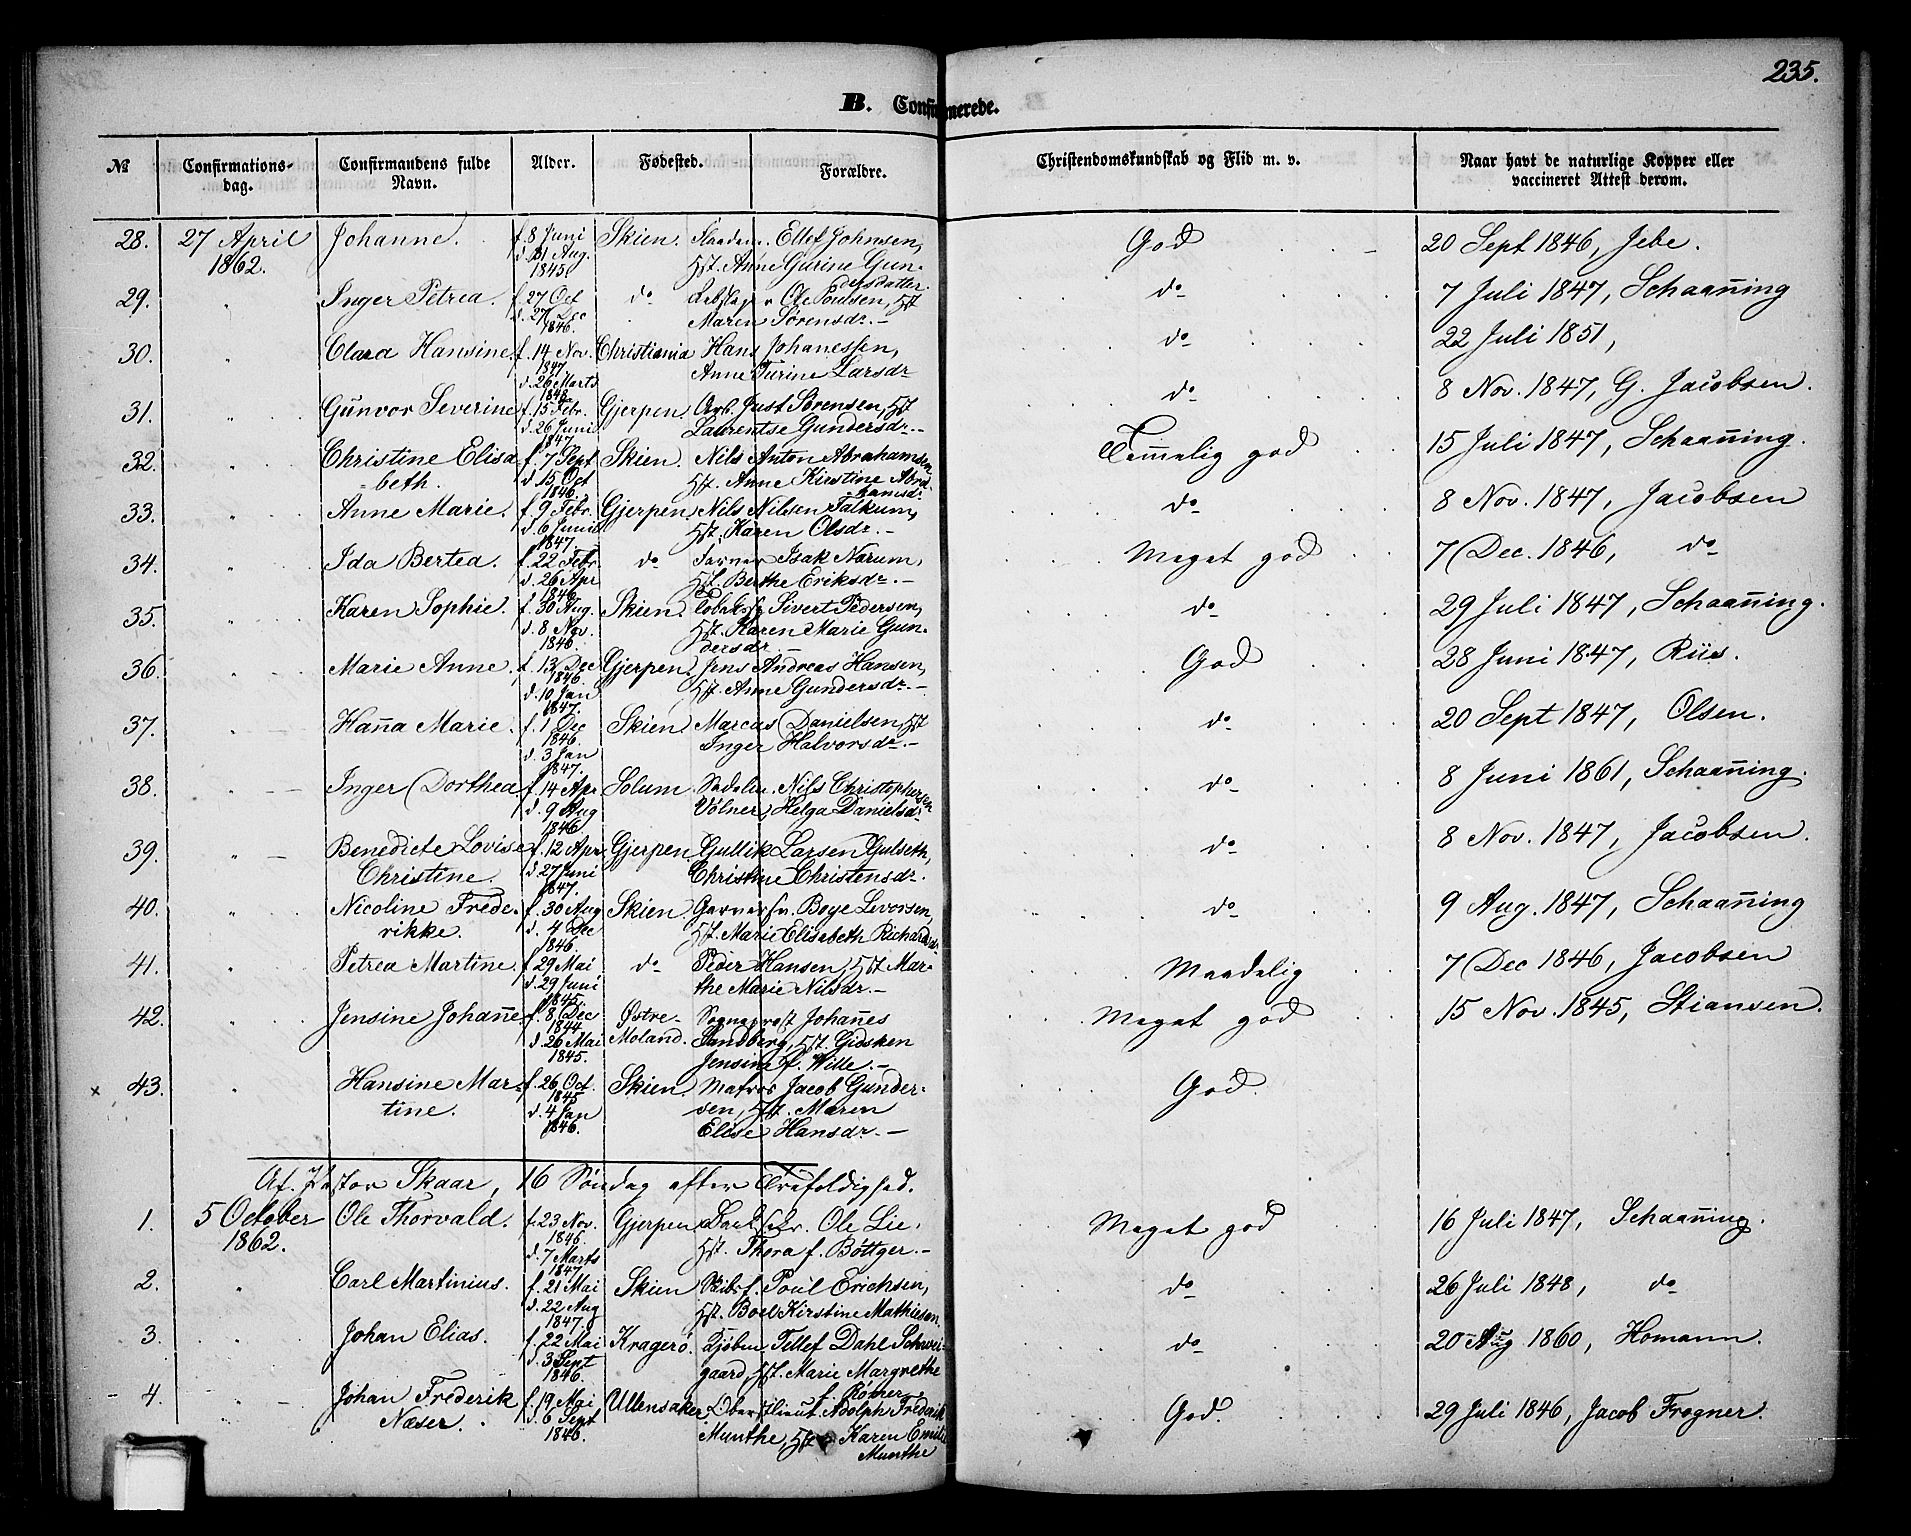 235.
B. Confirmerede.
№ Confirmations-dag. Confirmandens fulde Navn. Alder. Fødested. Forældre. Christendomskundskab og Flid m. v. Naar havt de naturlige Kopper eller vaccineret Attest derom.
28. 27 April Johanne. f. 8 Juni Skien. Ellef Johnsen, God 20 Sept 1846, Jebe.
1862. d. 31 Aug. Hst. Anne Gurine Gun-
1845. dersdatter.
29. " Inger Petrea. f. 27 Oct do Ole Poulsen, Hst do 7 Juli 1847, Schaaning
d. 27 Dec Maren Sørensdr. —
1846.
30. " Clara Hansine. f. 14 Nov. Christiania Hans Johanessen, do 22 Juli 1851,
1847 Anne Turine Larsdr
d. 26 Marts
1848.
31. " Gunvor Severine f. 15 Febr. Gjerpen Arb. Just Sørensen, Hst do 8 Nov. 1847, G. Jacobsen.
d. 26 Juni Laurentse Gundersdr. —
1847
32. " Christine Elisa f. 7 Sept Skien. Nils Anton Abrahamsen Temmelig god 15 Juli 1847, Schaaning.
beth. d. 15 Oct Hst. Anne Kirstine Abra-
1846. hamsdr
33. " Anne Marie. f. 9 Febr. Gjerpen Nils Nilsen Falkum, do 8 Nov. 1847, Jacobsen
d. 6 Juni Hst. Karen Olsdr. —
1847
34. " Ida Bertea. f. 22 Febr do Farver Isak Narum, Meget god 7 Dec. 1846, do
d. 26 Apr Hst. Berthe Eriksdr. —
1846
35. " Karen Sophie. f. 30 Aug. Skien. Sivert Pedersen, do 29 Juli 1847, Schaaning.
d. 8 Nov. Hst. Karen Marie Gun-
1846. dersdr. —
36. " Marie Anne. f. 13 Dec Gjerpen. Jens Andreas Hansen, God 28 Juni 1847, Riis.
1846. Hst. Anne Gundersdr. —
d. 10 Jan
1847.
37. " Hanna Marie. f. 1 Dec Skien. Marcus Danielsen, Hst do 20 Sept 1847, Olsen.
1846. Inger Halvorsdr. —
d. 3 Jan
1847.
38. " Inger Dorthea f. 14 Apr Solum. Nils Christophersen do 8 Juni 1861, Schaaning.
d. 9 Aug Vølner, Helga Danielsdr
1846
39. " Benedicte Lovise f. 12 Apr Gjerpen Gullik Larsen Gulseth, do 8 Nov. 1847, Jacobsen.
Christine. d. 27 Juni Christine Christensdr.
1847.
40. " Nicoline Frede- f. 30 Aug Skien. Boye Levorsen, do 9 Aug. 1847, Schaaning
rikke. d. 4 Dec Hst. Marie Elisabeth Richardsdr
1846
41. " Petrea Martine. f. 29 Mai do Peder Hansen, Hst Mar- Maadelig 7 Dec 1846, Jacobsen
d. 29 Juni the Marie Nilsdr. —
1845.
42. " Jensine Johanne f. 8 Dec Østre- Sogneprest Johanes Meget god 15 Nov. 1845, Stiansen.
1844. Moland. Sandberg, Hst. Gidsken
d. 26 Mai Jensine f. Wille. —
1845.
x 43. " Hansine Mar- f. 26 Oct. Skien. Matros Jacob Gunder- God.
tine. 1845 sen, Hst. Maren
d. 4 Jan Elise Hansdr. —
1846.
Af Pastor Skaar, 16 Søndag efter Trefoldighed.
1. 5 October Ole Thorvald. f. 23 Nov. Gjerpen Ole Lie, Meget god 16 Juli 1847, Schaaning.
1862. 1846. Hst. Thora f. Bøttger. —
d. 7 Marts
1847
2. " Carl Martinius. f. 21 Mai Skien Skibsf. Poul Erichsen, do 26 Juli 1848, do
d. 22 Aug Hst. Boel Kirstine Mathiesen.
1847.
3. " Johan Elias. f. 22 Mai Kragerø. Kjøbm Tellef Dahl Schwei- do 20 Aug 1860, Homann.
d. 3 Sept gaard, Hst. Marie Margrethe
1846. f. Rømer.
4. " Johan Frederik f. 19 Mai Ullensaker Oberstlieut. Adolph Frederik God. 29 Juli 1846, Jacob Frogner.
Næser. d. 6 Sept Munthe, Hst Karen Emilie
1846. Munthe